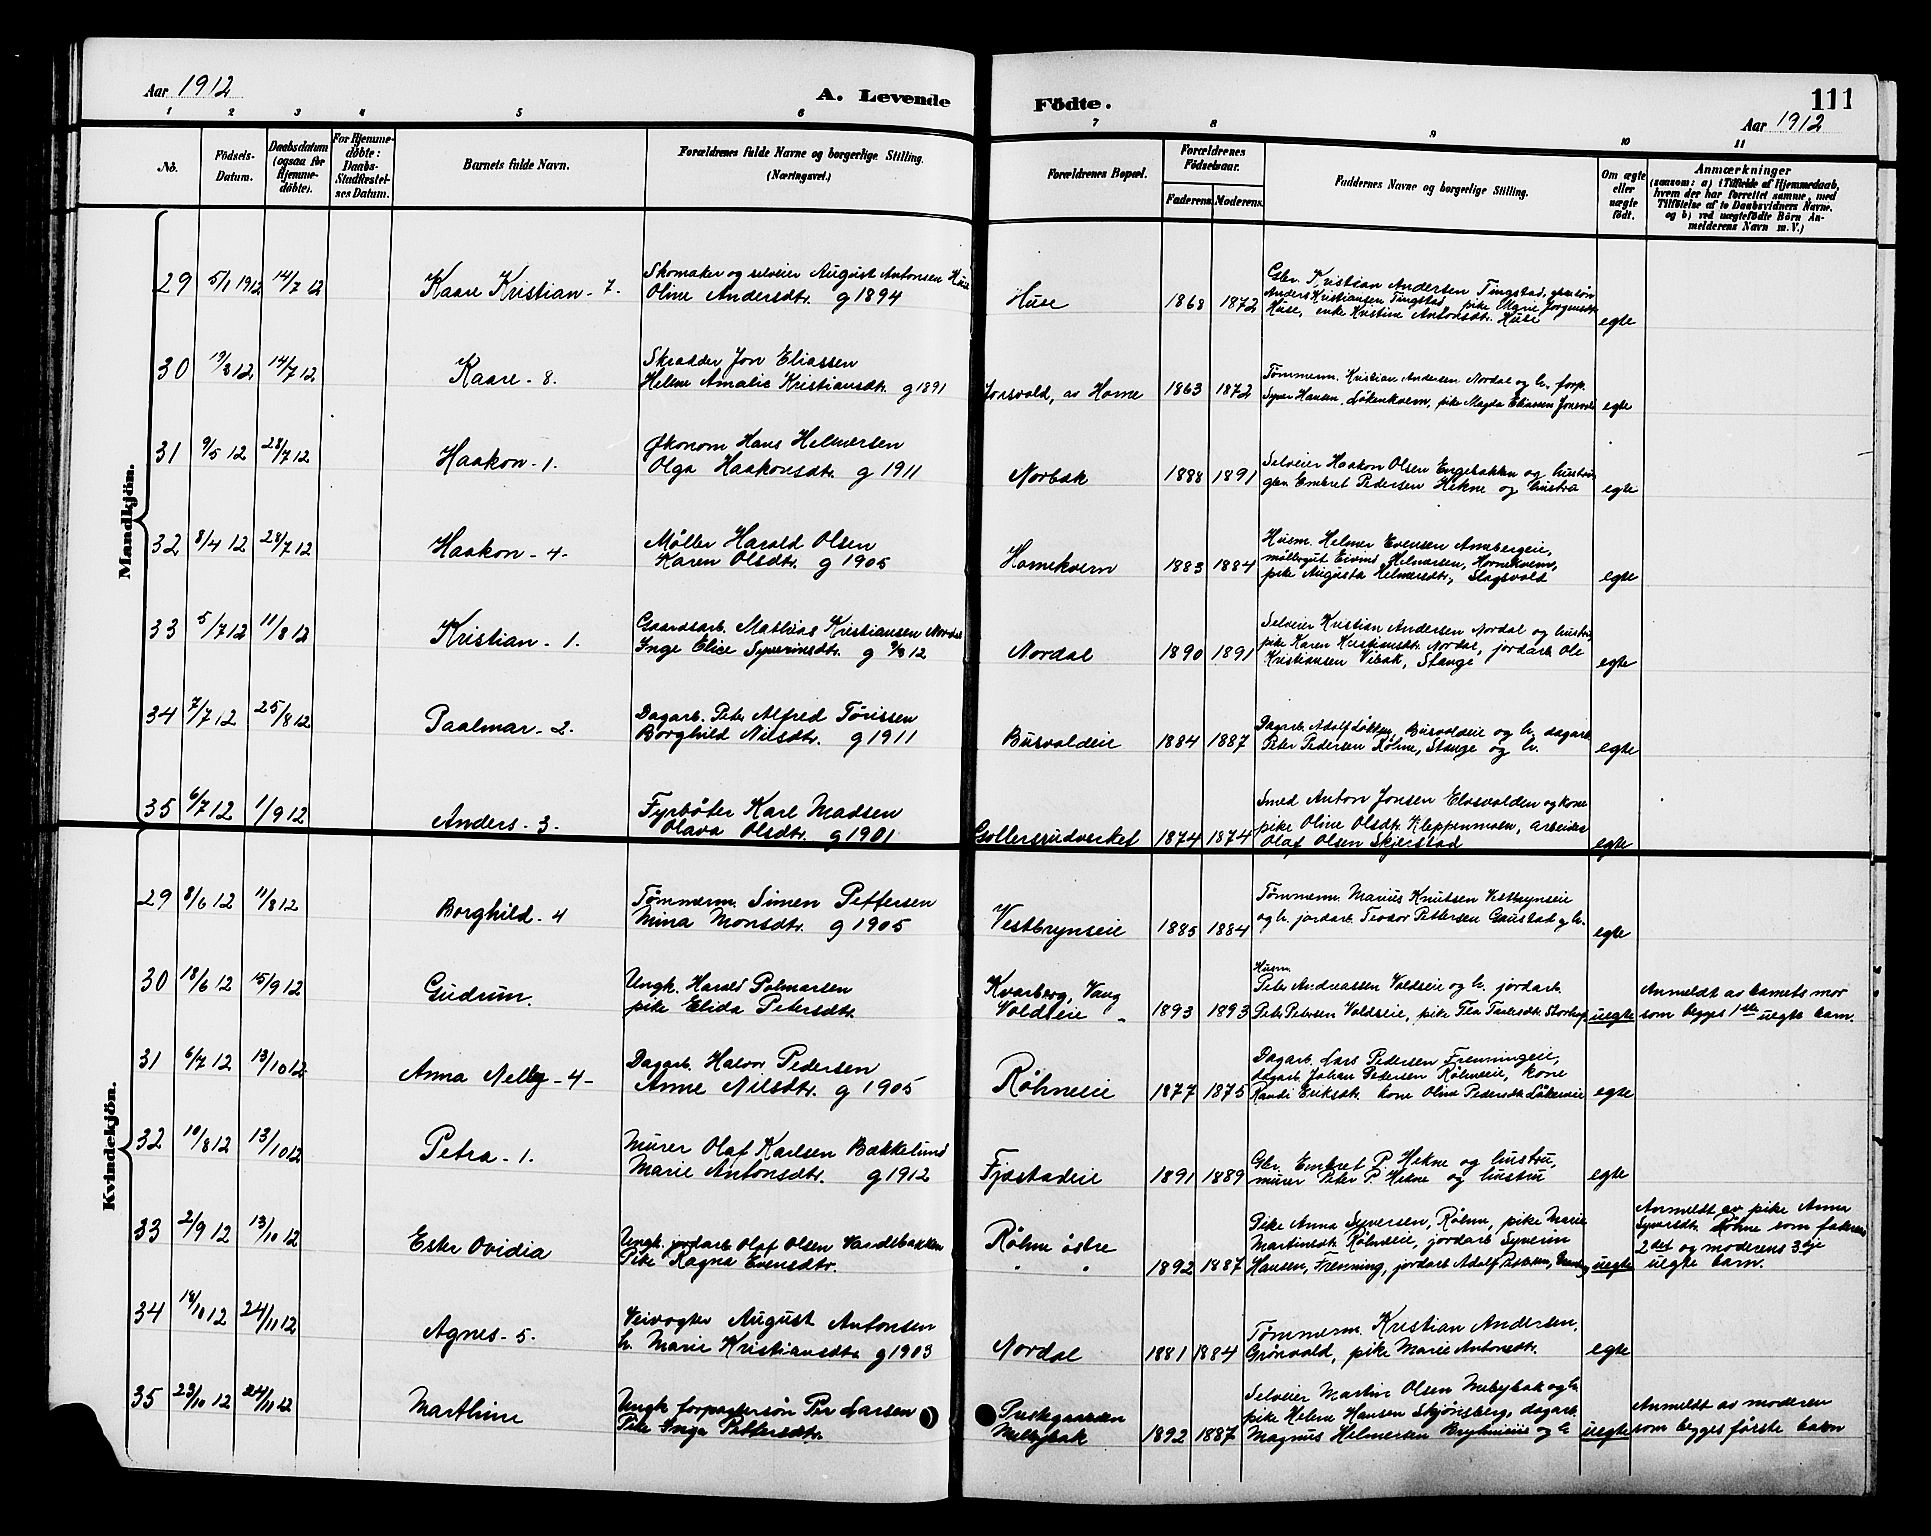 Aar 1912
A. Levende Födte.
111
Aar 1912
1 2 3 4 5 6 7 8 9 10 11
No.
Födsels-Datum.
Daabsdatum (ogsaa for Hjemme-döbte).
For Hjemme-döbte: Daabs-Stadfæstel-ses Datum.
Barnets fulde Navn.
Forældrenes fulde Navne og borgerlige Stilling.
(Næringsvei.)
Forældrenes Bopæl.
Forældrenes Födselsaar.
Faderens. Moderens.
Faddernes Navne og borgerlige Stilling.
Om ægte eller uægte födt.
Anmærkninger
(saasom: a) i Tilfælde af Hjemmedaab,
hvem der har forrettet samme, med
Tilföielse af to Daabsvidners Navne.
og b) ved uægtefödte Börn An-
melderens Navn m. V.)
Mandkjön.
29 5/1 1912 14/7 12 Kaare Kristian - 7.
Skomaker og selveier August Antonsen Huse
Oline Andersdtr. g 1894
Huse 1868 1872
Gbr. Kristian Andersen Tingstad,
Anders Kristiansen Tingstad, pike Marie Jörgensdtr.
Huse, enke Kristine Antonsdtr. Huse
egte
30 19/3 12 14/7 12 Kaare - 8.
Skrædder Jon Eliassen
Helene Amalie Kristiansdtr. g 1891
Jonsvold, av Horne 1863 1872
Tømmerm. Kristian Andersen Nordal og h. forp.
Syver Hansen, Løkenkvern, pike Magda Eliassen Jonsvold
egte
31 9/5 12 28/7 12 Haakon - 1.
Økonom Hans Helmersen
Olga Haakonsdtr. g 1911
Norbæk 1888 1891
Selveier Haakon Olsen Engebakken og hustru
gbr. Embret Pedersen Hekne og hustru
egte
32 8/4 12 28/7 12 Haakon - 4.
Møller Harald Olsen
Karen Olsdtr. g 1905
Hornekvern 1883 1884
Husm. Helmer Evensen Annbergeie,
møllergut Eivind Helmersen, Hornekvern,
pike Augusta Helmersdtr, Slagsvold
egte
33 5/7 12 11/8 12 Kristian - 1.
Gaardsarb. Mathias Kristiansen Nordal
Inge Elice Syverinsdtr. g 9/3 12
Nordal 1890 1891
Selveier Kristian Andersen Nordal og hustru,
pike Karen Kristiansdtr. Nordal, jordarb. Ole
Kristiansen Vibæk, Stange
egte
34 7/7 12 25/8 12 Paalmar - 2.
Dagarb. Peter Alfred Tørissen
Borghild Nilsdtr. g 1911
Busvoldeie 1884 1887
Dagarb. Adolf Løkken, Busvoldeie og h. dagarb.
Peter Pedersen Røhne, Stange og h.
egte
35 6/7 12 1/9 12 Anders - 3.
Fyrbøter Karl Madsen
Olava Olsdtr. g 1901
Gollersrudverket 1874 1874
Smed Anton Jonsen Elvsvolden og kone
pike Oline Olsdtr. Kleppenmoen, arbeider
Olaf Olsen Skjerstad
egte
Kvindekjön.
29 8/6 12 11/8 12 Borghild - 4
Tømmerm. Simen Pettersen
Mina Monsdtr. g 1905
Vestbrynseie 1885 1884
Tømmerm. Marius Knutsen Vestbrynseie
og h. jordarb. Teodor Pettersen Gaustad og h.
egte
30 18/6 12 15/9 12 Gudrun.
Ungk. Harald Palmarsen
pike Elida Petersdtr.
Kvarberg, Vang
Voldseie 1893 1893
Husm.
Peter Andreassen Voldseie og h. jordarb.
Peter Petersen Voldseie, pike
uegte
Anmeldt av barnets mor
som begges 1ste uegte barn.
31 6/7 12 13/10 12 Anna Nelly - 4 -
Dagarb. Halvor Pedersen
Anne Nilsdtr. g 1905
Røhneeie 1877 1875
Dagarb. Lars Pedersen Frenningeie,
dagarb. Johan Pedersen Røhneeie, kone
Randi Eriksdtr. kone Oline Pedersdtr. Løkeneie
egte
32 19/8 12 13/10 12 Petra - 1.
Murer Olaf Karlsen Bækkelund
Marie Antonsdtr. g 1912
Fjæstadeie 1891 1889
Gbr. Embret P. Hekne og hustru,
murer Peter P. Hekne og hustru
egte
33 2/9 12 13/10 12 Ester Ovidia
Ungk. jordarb. Olaf Olsen Vardebakken
Pike Ragna Evensdtr.
Røhne østre
" " 1892 1887
Pike Anna Syversen, Røhne, pike Marie
Martinsdtr. Røhneeie, jordarb. Syverin
Hansen, Frenning, jordarb. Adolf
uegte
Anmeldt av pike Anna
Syversdtr. Røhne som faderens
2det og moderens 3dje
uegte barn.
34 18/10 12 24/11 12 Agnes - 5.
Veivogter August Antonsen
h. Marie Kristiansdtr. g 1903
Nordal 1881 1884
Tømmerm. Kristian Andersen,
Grønvold, pike Marie Antonsdtr.
egte
35 23/10 12 24/11 12 Marthine
Ungk. forpaktersøn Per Larsen
Pike Inga Pettersdtr.
Prestegaarden
Melbybæk 1892 1887
Selveier Martin Olsen Melbybæk og h.
pike Helene Hansen Skjønsberg, dagarb.
Magnus Helmersen Brynieie og h.
uegte
Anmeldt av moderen
som begges første barn